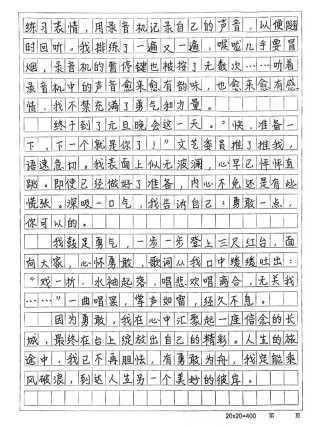 练习表情，用录音机记录自己的声音，以便随
时回听。我排练了一遍又一遍，喉咙几乎要冒
烟，录音机的暂停键也被按了无数次……听着
录音机中的声音愈来愈有韵味，也愈来愈有感
情，我不禁充满了勇气和力量。
终于到了元旦晚会这一天。“快，准备一
下，下一个就是你了！”文艺委员推了推我，
语速急切。我表面上似无波澜，心早已怦怦直
跳。即使已经做好了准备，内心不免还是有些
慌张。深吸一口气，我告诉自己：勇敢一点，
你可以的。
我鼓足勇气，一步一步登上三尺红台，面
向大家，心怀勇敢，歌词从我口中缓缓吐出：
“戏一折，水袖起落，唱悲欢唱离合，无关我
……”一曲唱罢，掌声如雷，经久不息。
因为勇敢，我在心中汇聚起一座信念的长
城，最终在台上绽放出自己的精彩。人生的旅
途中，我已不再胆怯，有勇敢为舟，我定能乘
风破浪，到达人生另一个美好的彼岸。
20×20=400 第 页